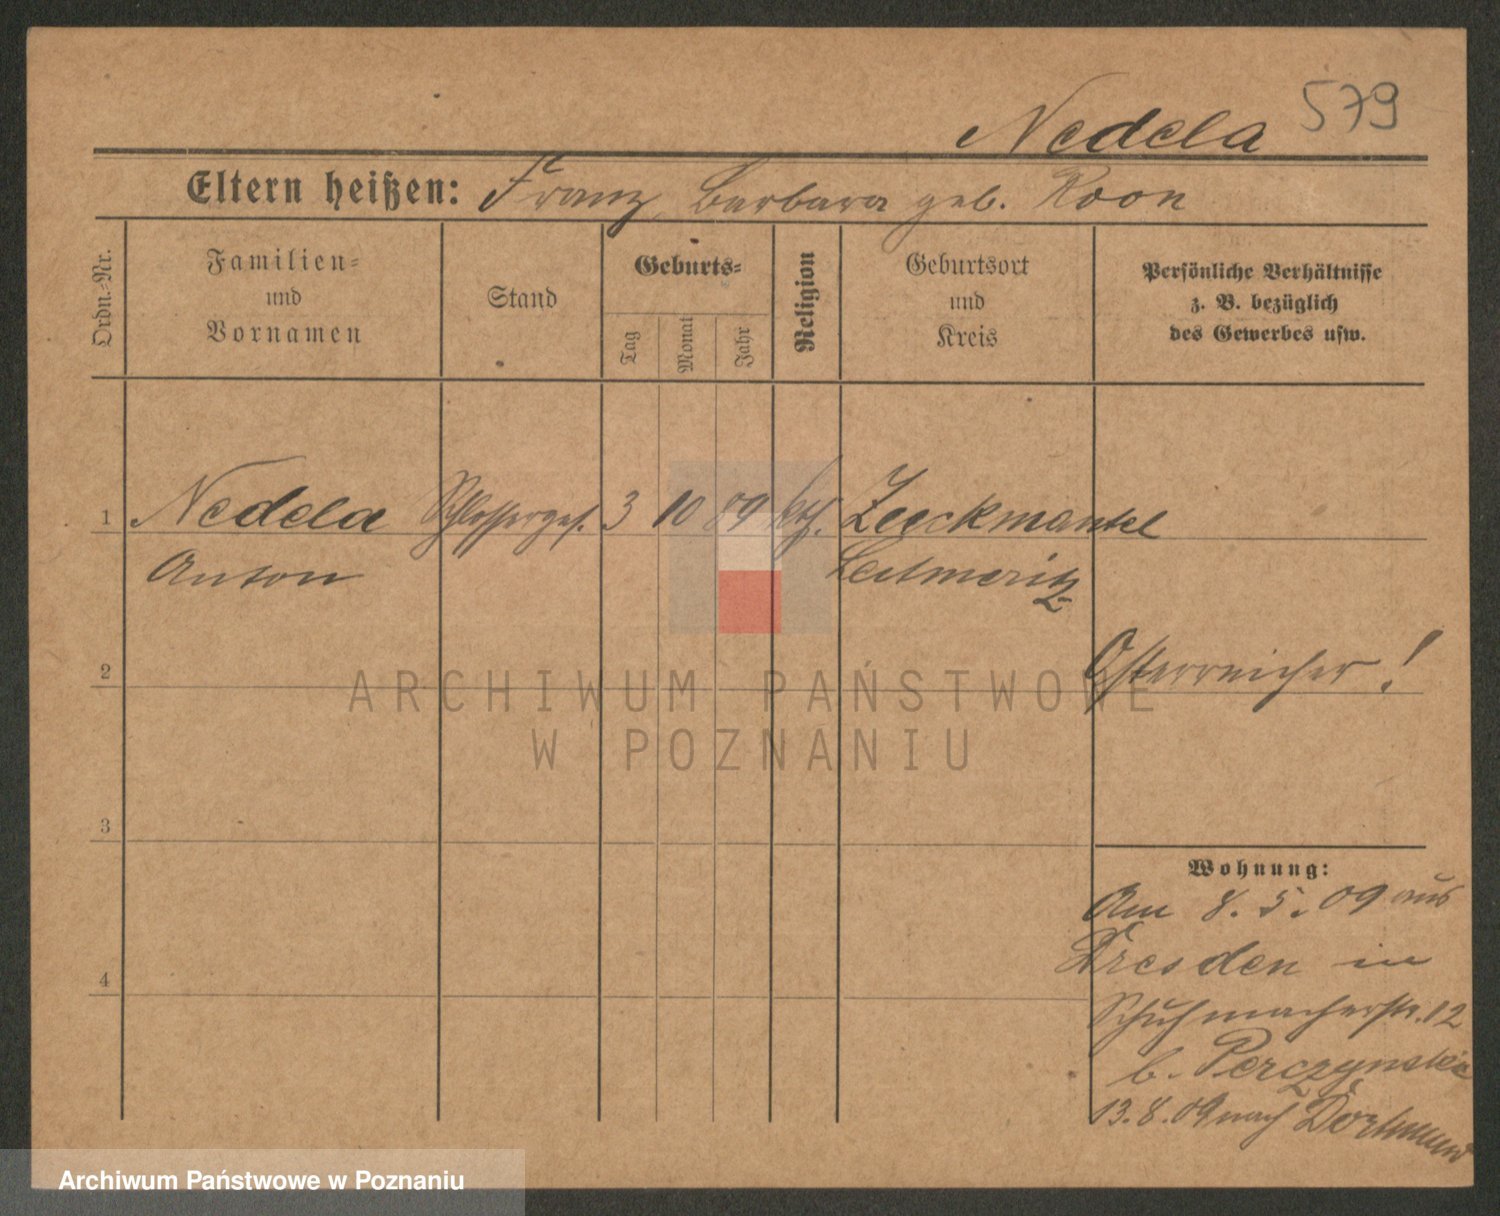 579
Nedela
Eltern heißen: Franz, Barbara geb. Koon
Ordn.-Nr.
Familien-
und
Vornamen
Stand
Geburts-
Tag
Monat
Jahr
Religion
Geburtsort
und
Kreis
Persönliche Verhältnisse
z. B. bezüglich
des Gewerbes usw.
1 Nedela Schlosserges. 3 10 89 kth. Zeeckmantel
Anton Leitmeritz
2 Österreicher!
3
4
Wohnung:
Am 8. 5. 09 aus
Dresden in
Schuhmacherstr. 12
b. Perczynski
13. 8. 09 nach Dortmund
ARCHIWUM PAŃSTWOWE
W POZNANIU
Archiwum Państwowe w Poznaniu